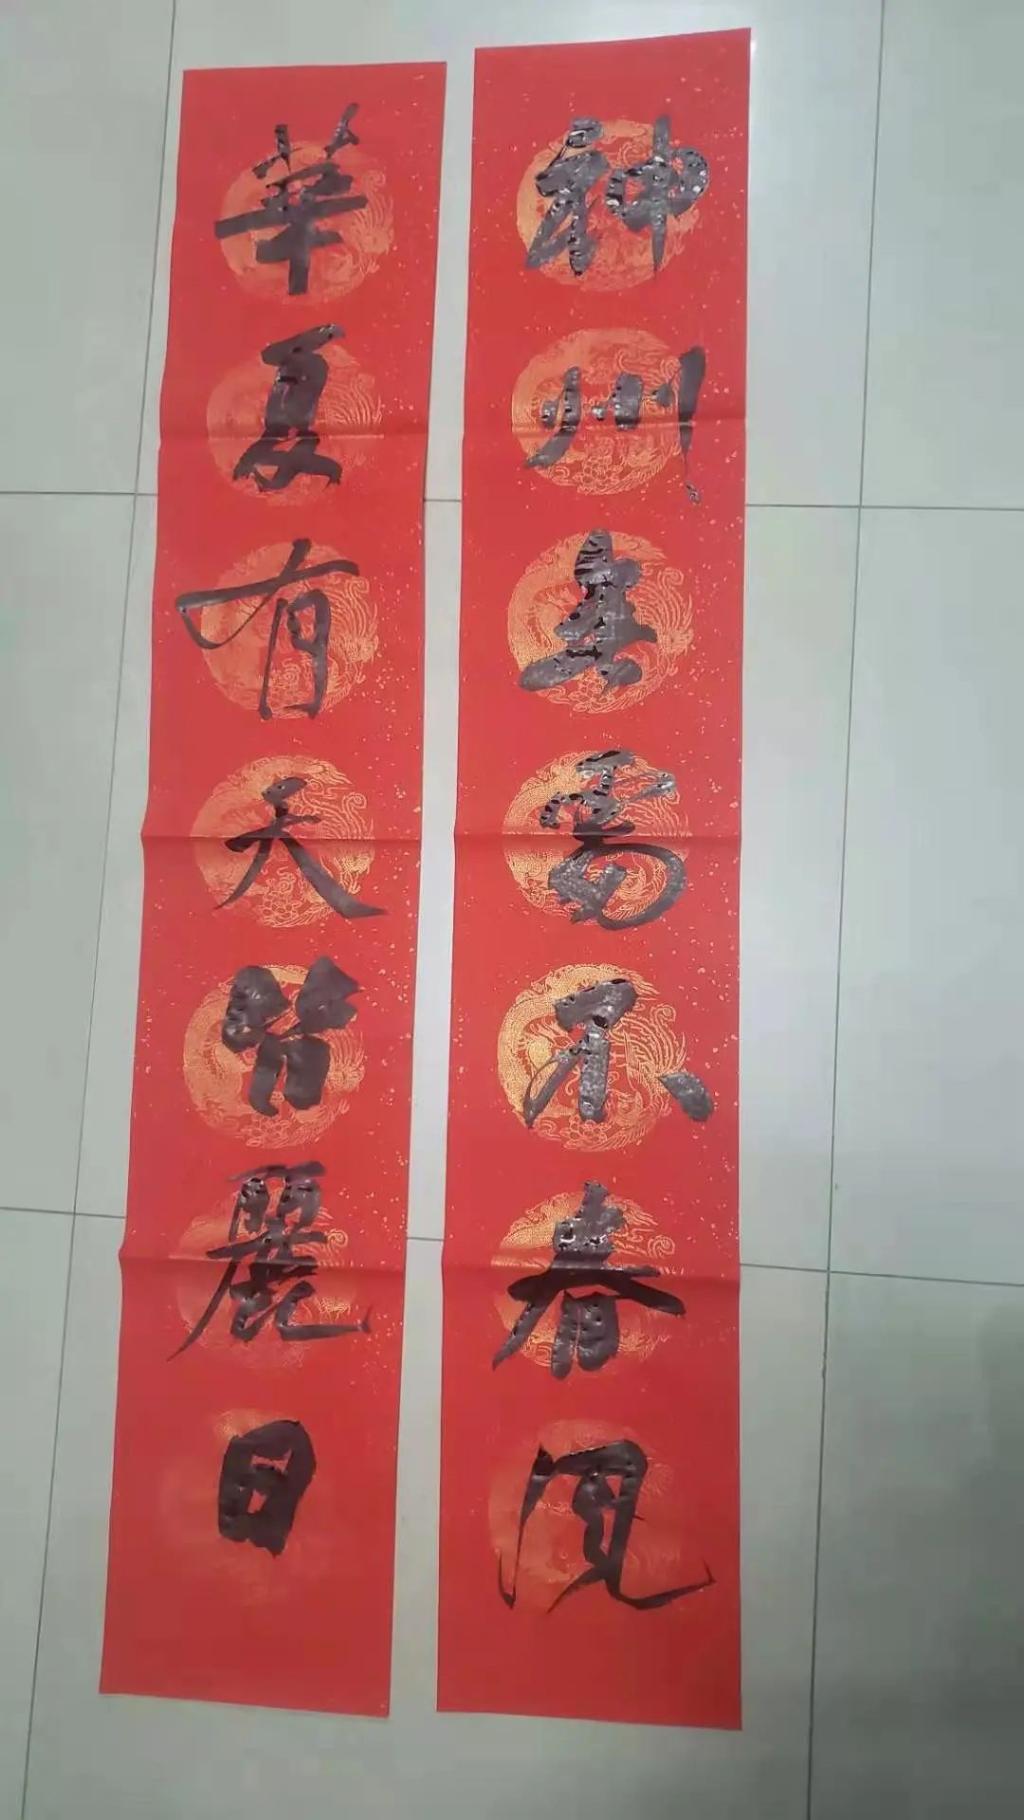 神州無處不春風
華夏有天皆麗日